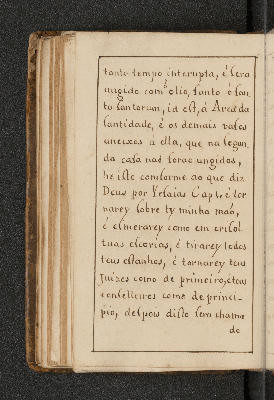 tanto tempo interupta, é sera
ungido com o olio, santo é san-
to santorum, id est, á Arca da
santidade, é os demais vasos
anexos á ella, que na segun-
da casa nas forao ungidos,
he isto comforme ao que diz
Deus por Yesaias Cap 1, é tor-
narey sobre ty minha maõ,
é esmerarey como em crisol
tuas escorias, é tirarey todos
teus estanhos, é tornarey teus
Juizes como de primeiro, é teus
conselleiros como de princi-
pio, despois disto sera chama
do